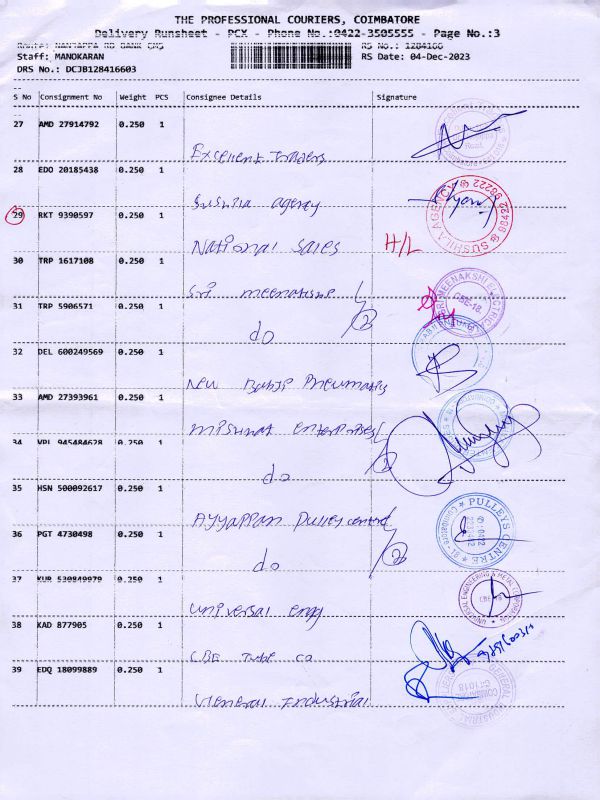 THE PROFESSIONAL COURIERS, COIMBATORE
Delivery Runsheet - PCX - Phone No.:0422-3505555 - Page No.:3
RS No.: 1284166
Staff: MANOKARAN RS Date: 04-Dec-2023
DRS No.: DCJB128416603
S No Consignment No Weight PCS Consignee Details Signature
27 AMD 27914792 0.250 1
Excellent Traders
28 EDO 20185438 0.250 1
Sushila agency
29 RKT 9390597 0.250 1
National Sales H/L
30 TRP 1617108 0.250 1
Sri
31 TRP 5906571 0.250 1
do 2
32 DEL 600249569 0.250 1
New Pneumatis
33 AMD 27393961 0.250 1
enterprises
34 VPL 945484628 0.250 1
do 2
35 HSN 500092617 0.250 1
Ayyappan Pulley centre
36 PGT 4730498 0.250 1
do 2
37 KUR 530849979 0.250 1
Universal engg
38 KAD 877905 0.250 1
CBE Tube co
39 EDQ 18099889 0.250 1
General Industrial
SUSHILA AGENCY
MEENAKSHI ELECTRICAL
CBE-18.
PULLEYS CENTRE
UNIVERSAL ENGINEERING & METAL CORPORATION